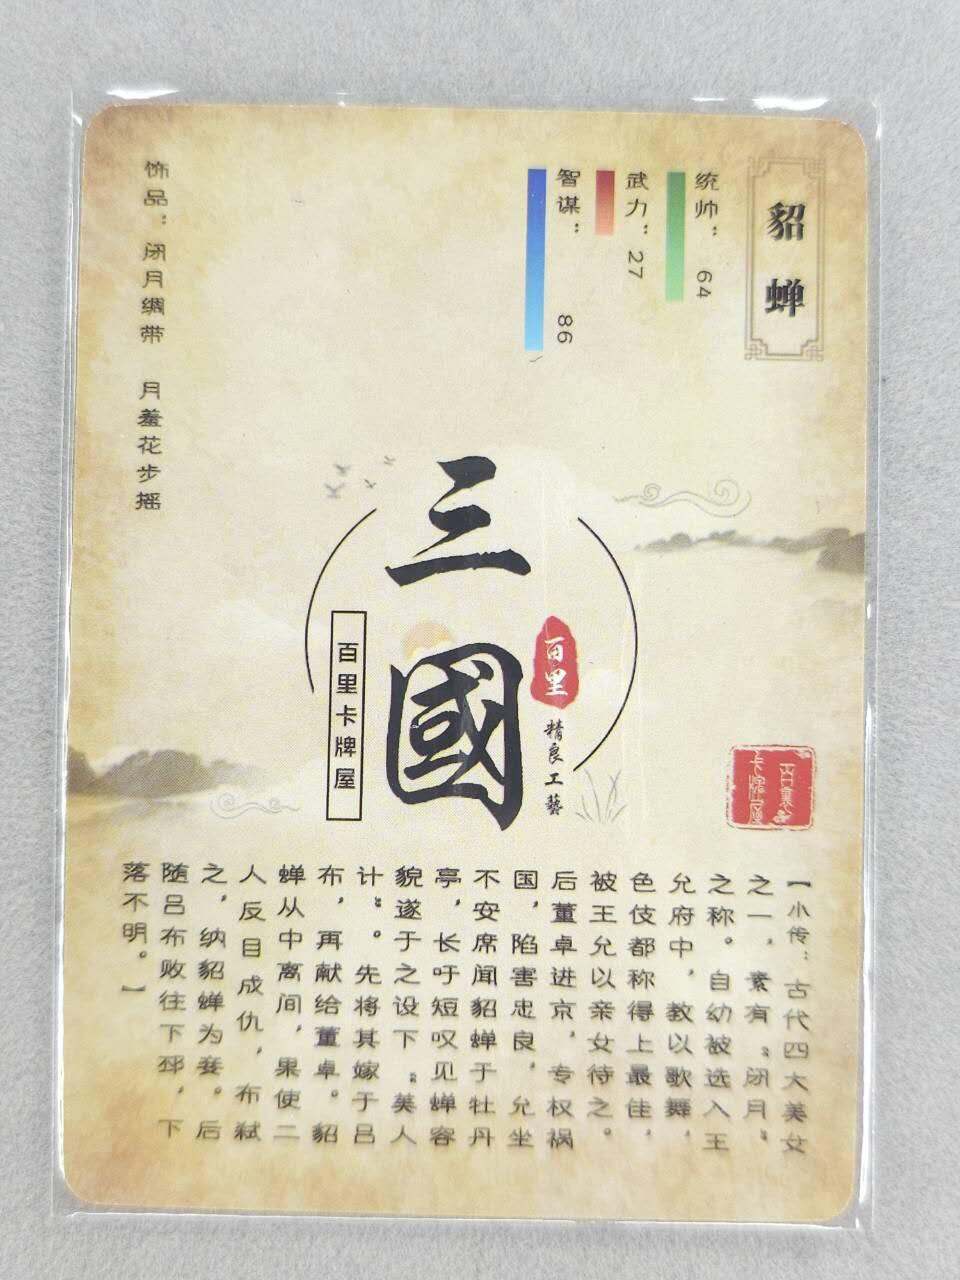 貂蝉
统帅：64
武力：27
智谋：86
饰品：闭月绸带 月羞花步摇
三國
百里
精良工藝
百里卡牌屋
【小传：古代四大美女
之一，素有“闭月”
之称。自幼被选入王
允府中，教以歌舞，
色伎都称得上最佳，
被王允以亲女待之。
后董卓进京，专权祸
国，陷害忠良，允坐
不安席闻貂蝉于牡丹
亭，长吁短叹见蝉容
貌遂于之设下“美人
计”。先将其嫁于吕
布，再献给董卓。貂
蝉从中离间，果使二
人反目成仇，布弑
之，纳貂蝉为妾。后
随吕布败往下邳，下
落不明。】